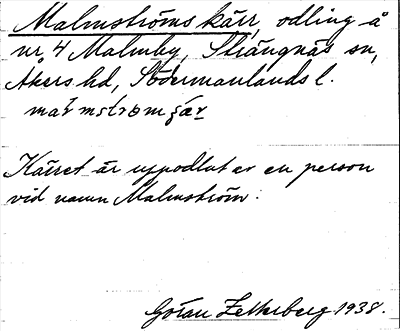 Malmströms kärr, odling å
nr 4 Malmby, Strängnäs sn,
Åkers hd, Södermanlands l.
Kärret är uppodlat av en person
vid namn Malmström.
Göran Zetterberg 1938.